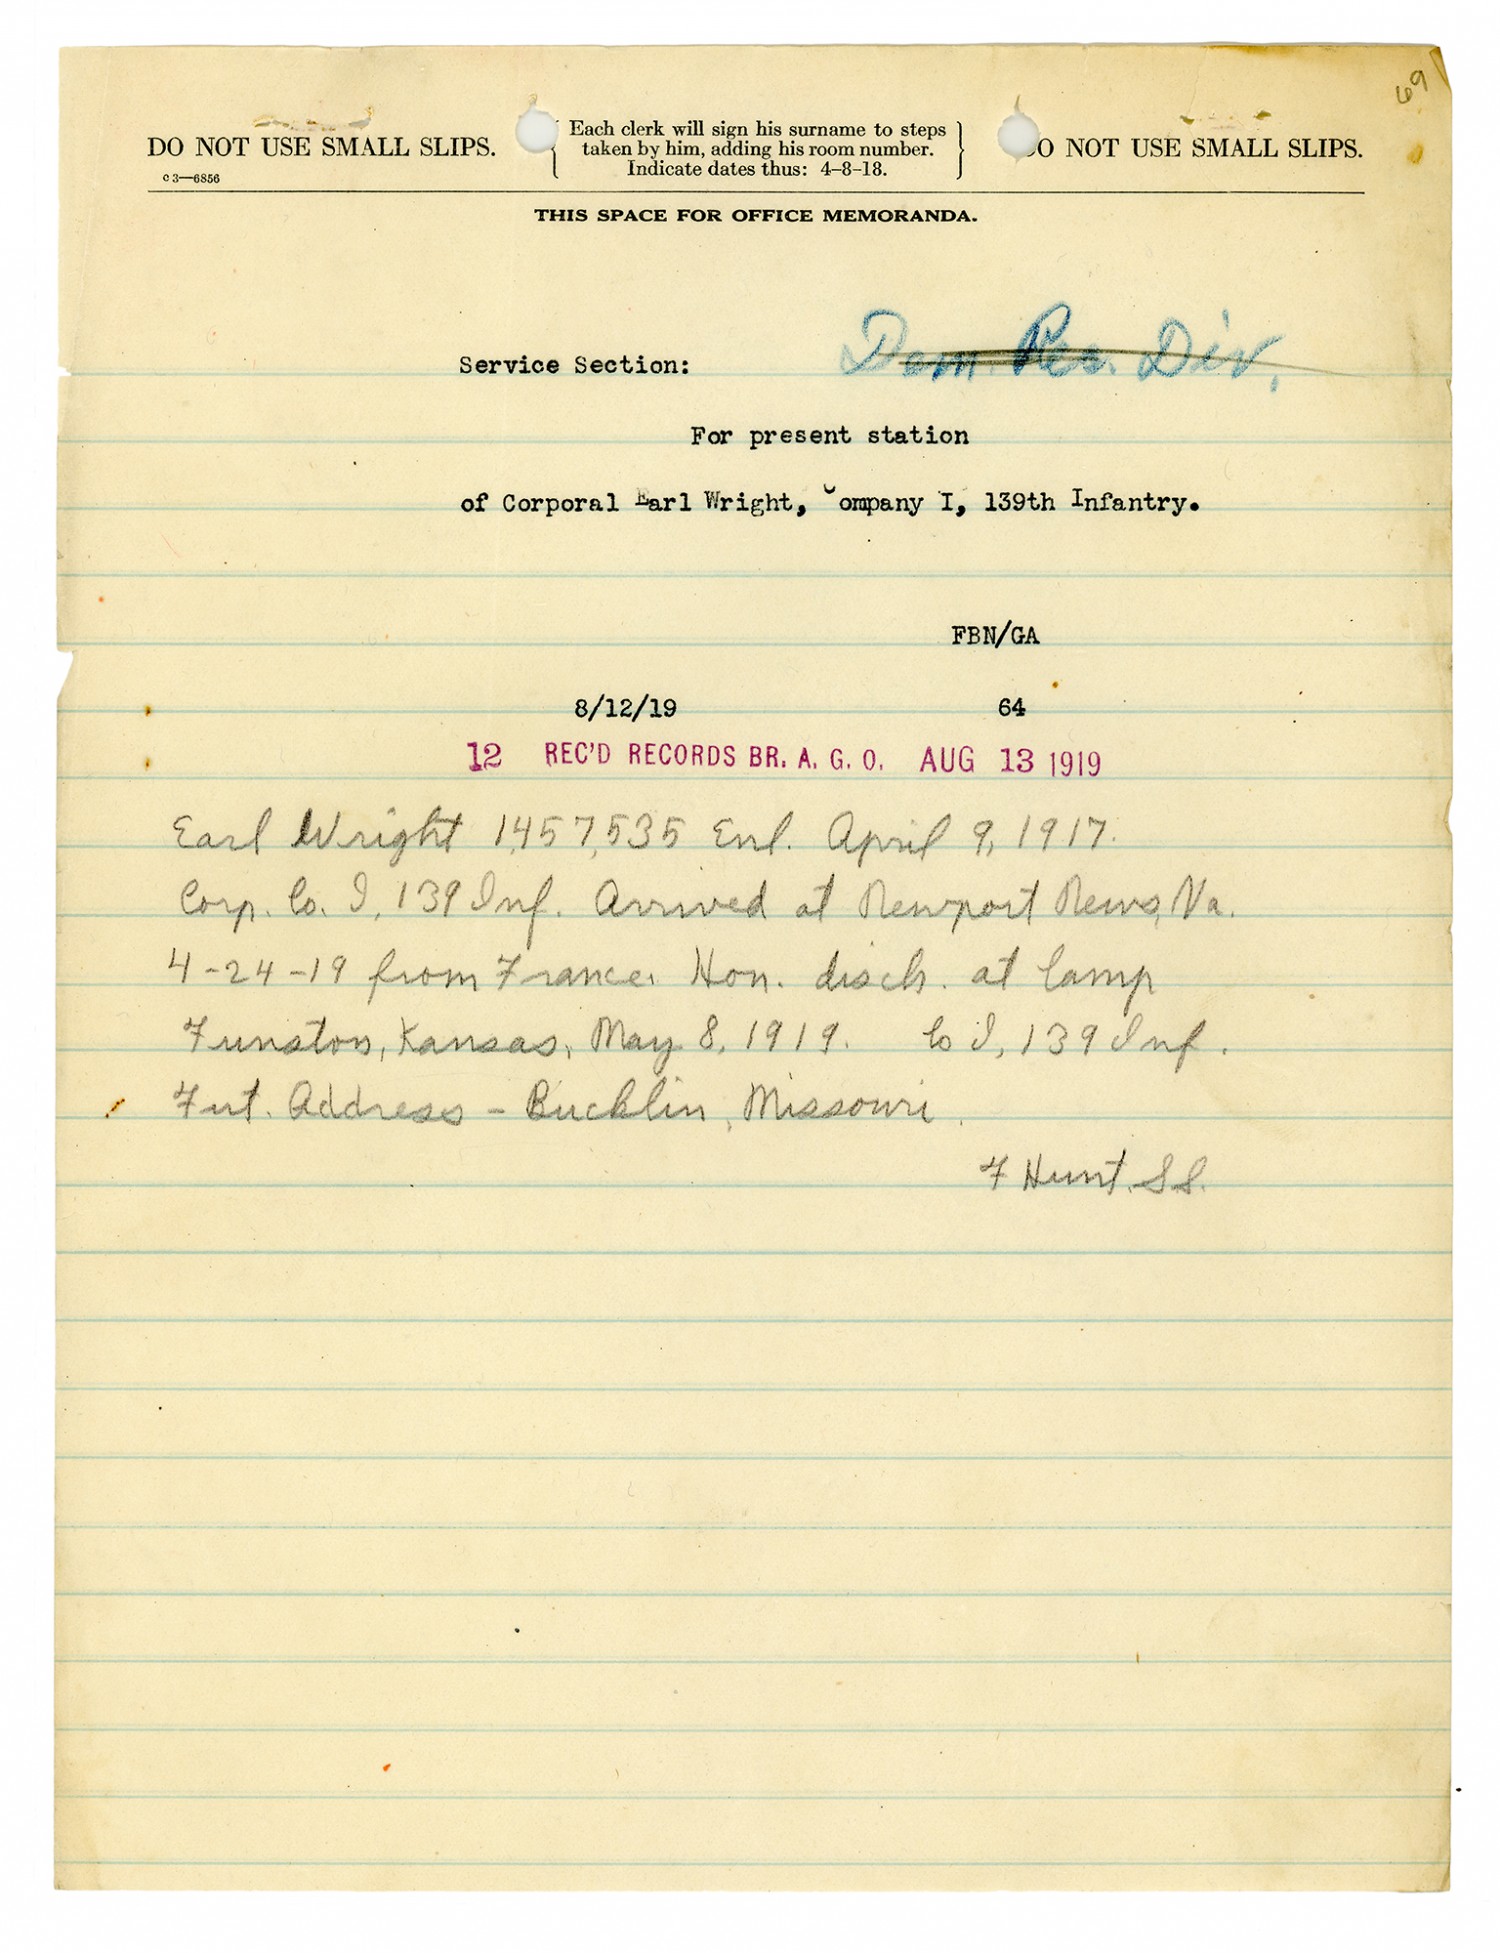 69
DO NOT USE SMALL SLIPS.
Each clerk will sign his surname to steps
taken by him, adding his room number.
Indicate dates thus: 4-8-18.
DO NOT USE SMALL SLIPS.
c3—6856
THIS SPACE FOR OFFICE MEMORANDA.
Dem. Rec. Div.
Service Section:
For present station
of Corporal Earl Wright, Company I, 139th Infantry.
FBN/GA
8/12/19 64
12 REC'D RECORDS BR. A. G. O. AUG 13 1919
Earl Wright 1,457,535 Enl. April 9, 1917.
Corp. Co. I, 139 Inf. Arrived at Newport News, Va.
4-24-19 from France. Hon. disch. at Camp
Funston, Kansas, May 8, 1919. Co I, 139 Inf.
Fut. Address - Bucklin, Missouri.
F Hunt. S.S.